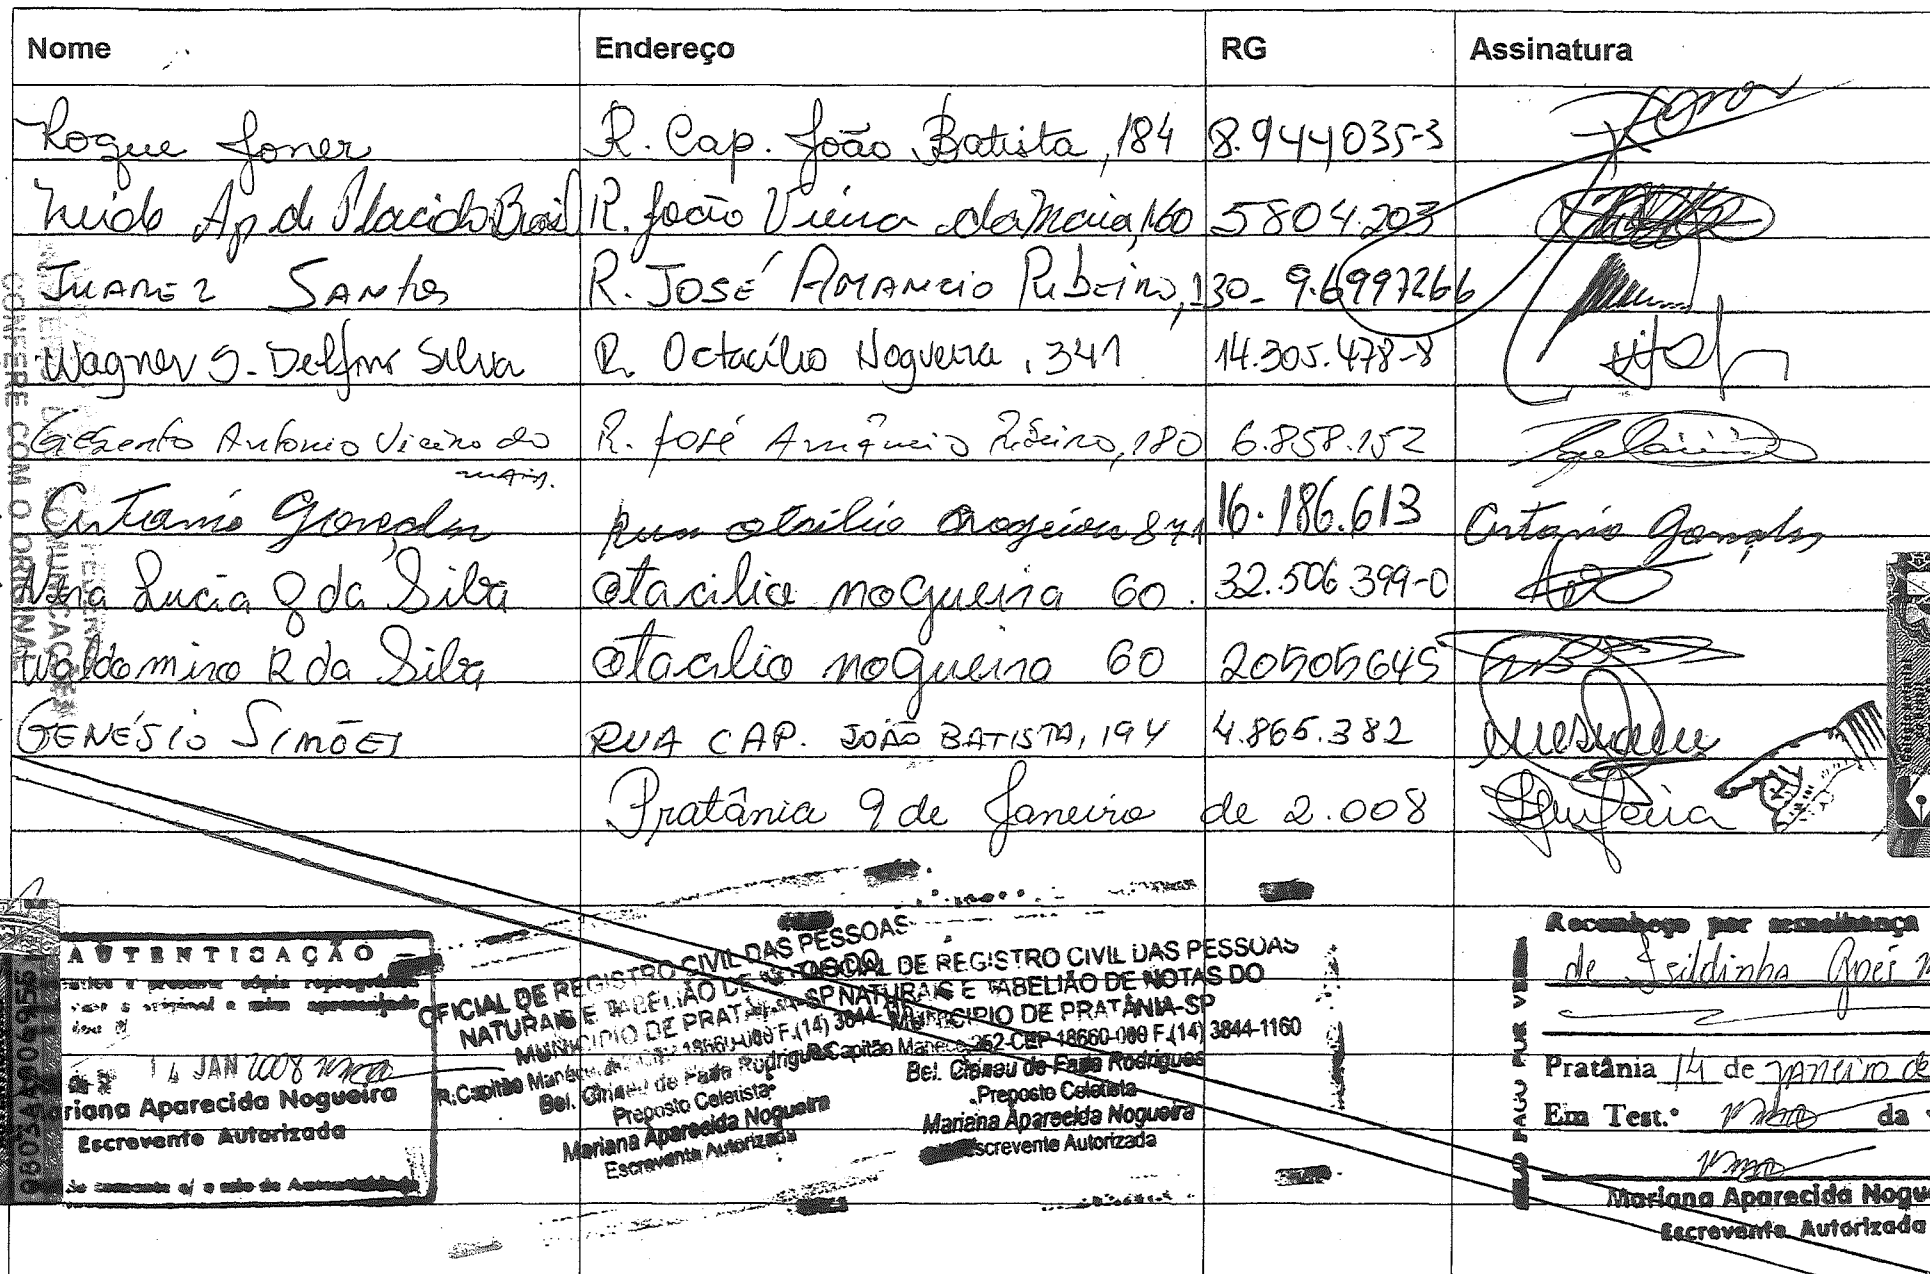 Nome Endereço RG Assinatura
Roque Joner R. Cap. João Batista, 184 8.944035-3
Ap. de Placido Brasil R. João Vieira da Maia, 160 5804.203
JUAREZ SANtos R. JOSÉ AMANCIO RibEiro, 130 - 9.6997266
Wagner S. Delfino Silva R. Octacílio Nogueira, 341 14.305.478-8
Gilberto Antonio Vieira da R. José Amâncio Ribeiro, 180 6.858.152
maia.
Antonio Gonçalves Rua otacilio nogueira 871 16.186.613 Antonio Gonçalves
Vera Lucia G da Silva otacilia nogueira 60. 32.506 399-0
Waldomiro R da Silva otacilio nogueira 60 20505645
GENÉSIO SIMÕES RUA CAP. JOÃO BATISTA, 194 4.865.382
Pratânia 9 de Janeiro de 2.008
CONFERE COM O ORIGINAL
AUTENTICAÇÃO
14 JAN 2008
Mariana Aparecida Nogueira
Escrevente Autorizada
0803AA806955
OFICIAL DE REGISTRO CIVIL DAS PESSOAS
NATURAIS E TABELIÃO DE NOTAS DO
MUNICIPIO DE PRATÂNIA-SP
R. Capitão Maneco, 262-CEP 18660-000 F.(14) 3844-1160
Preposto Celetista
Mariana Aparecida Nogueira
Escrevente Autorizada
OFICIAL DE REGISTRO CIVIL DAS PESSOAS
NATURAIS E TABELIÃO DE NOTAS DO
MUNICIPIO DE PRATÂNIA-SP
R.Capitão Maneco 262-CEP 18660-000 F.(14) 3844-1160
Bel. de Faria Rodrigues
Preposto Celetista
Mariana Aparecida Nogueira
Escrevente Autorizada
SELO PAGO POR VERBA
Reconheço por semelhança
de
Pratânia 14 de janeiro de
Em Test.º da v
Mariana Aparecida Nogue
Escrevente Autorizada